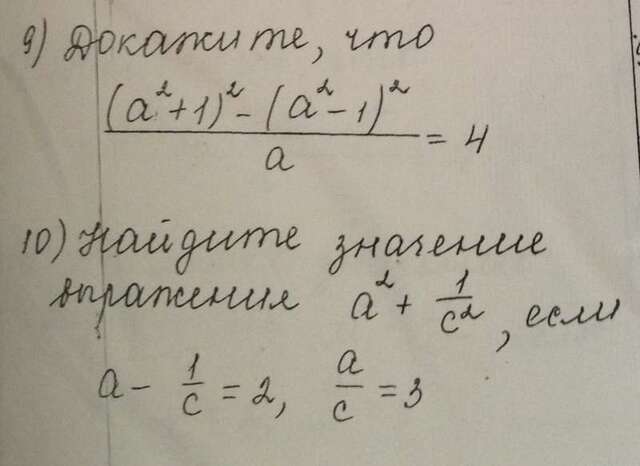 9) Докажите, что
((a²+1)² - (a²-1)²)/a = 4
10) Найдите значение
выражения a² + 1/c², если
a - 1/c = 2, a/c = 3